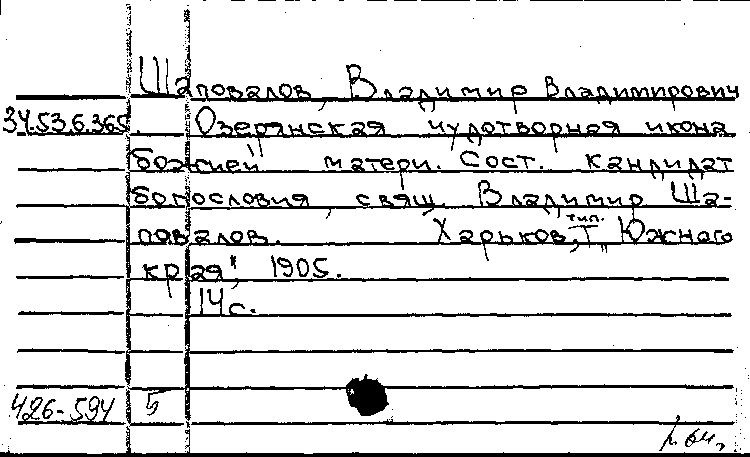 Шаповалов, Владимир Владимирович
34.53.6.365. Озерянская чудотворная икона
божией матери. Сост. кандидат
богословия, свящ. Владимир Ша-
повалов. Харьков, тип. „Южного
края", 1905.
14 с.
426-594 5